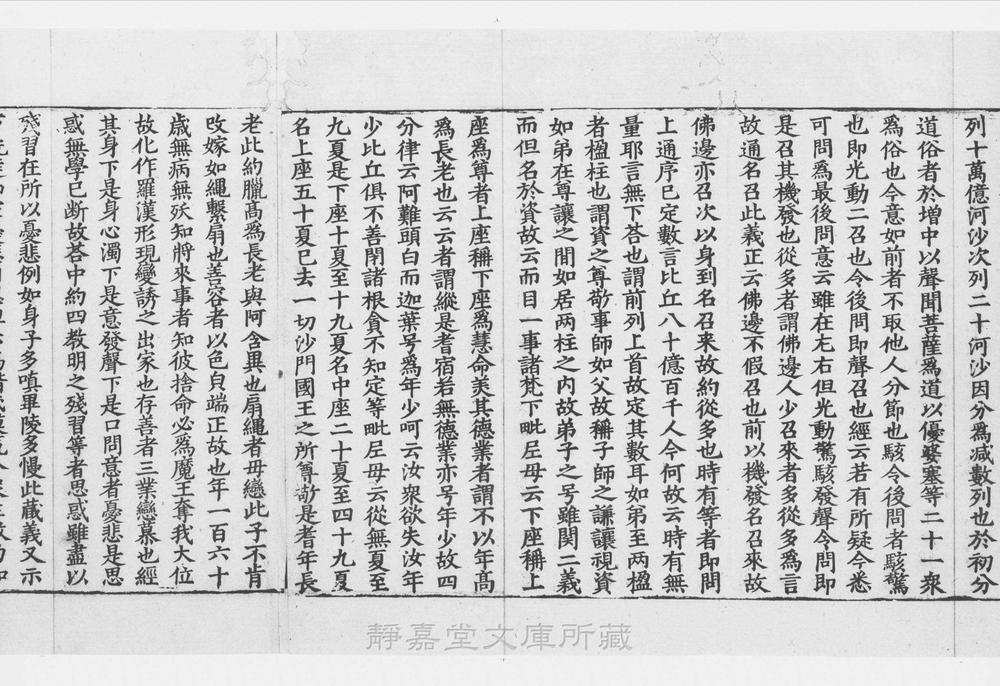 列十萬億河沙次列二十河沙因分爲减數列也於初分
道俗者於增中以聲聞菩薩爲道以優婆塞等二十一衆
爲俗也今意如前者不取他人分節也駭令後問者駭驚
也即光動二召也令後問即聲召也經云若有所疑今悉
可問爲最後問意云雖在左右但光動驚駭發聲令問即
是召其機發也從多者謂佛邊人少召來者多從多爲言
故通名召此義正云佛邊不假召也前以機發名召來故
佛邊亦召次以身到名召來故約從多也時有等者即問
上通序已定數言比丘八十億百千人今何故云時有無
量耶言無下荅也謂前列上首故定其數耳如弟至兩楹
者楹柱也謂資之尊敬事師如父故稱子師之謙讓視資
如弟在尊讓之閒如居两柱之内故弟子之号雖関二義
而但名於資故云而目一事諸梵下毗𡰱母云下座稱上
座爲尊者上座稱下座爲慧命美其德業者謂不以年髙
爲長老也云云者謂縱是耆宿若無德業亦号年少故四
分律云阿難頭白而迦葉号爲年少呵云汝衆欲失汝年
少比丘俱不善閉諸根貪不知定等毗𡰱母云從無夏至
九夏是下座十夏至十九夏名中座二十夏至四十九夏
名上座五十夏已去一切沙門國王之所尊敬是耆年長
老此約臘髙爲長老與阿含異也扇繩者毋戀此子不肯
改嫁如繩繫扇也善容者以色皃端正故也年一百六十
歳無病無夭知將來事者知彼捨命必爲魔王奪我大位
故化作羅漢形現變誘之出家也存善者三業戀慕也經
其身下是身心濁下是意發聲下是口問意者憂悲是思
惑無學已断故荅中約四教明之殘習等者思惑雖盡以
殘習在所以憂悲例如身子多嗔畢陵多慢此藏義又示
靜嘉堂文庫所藏